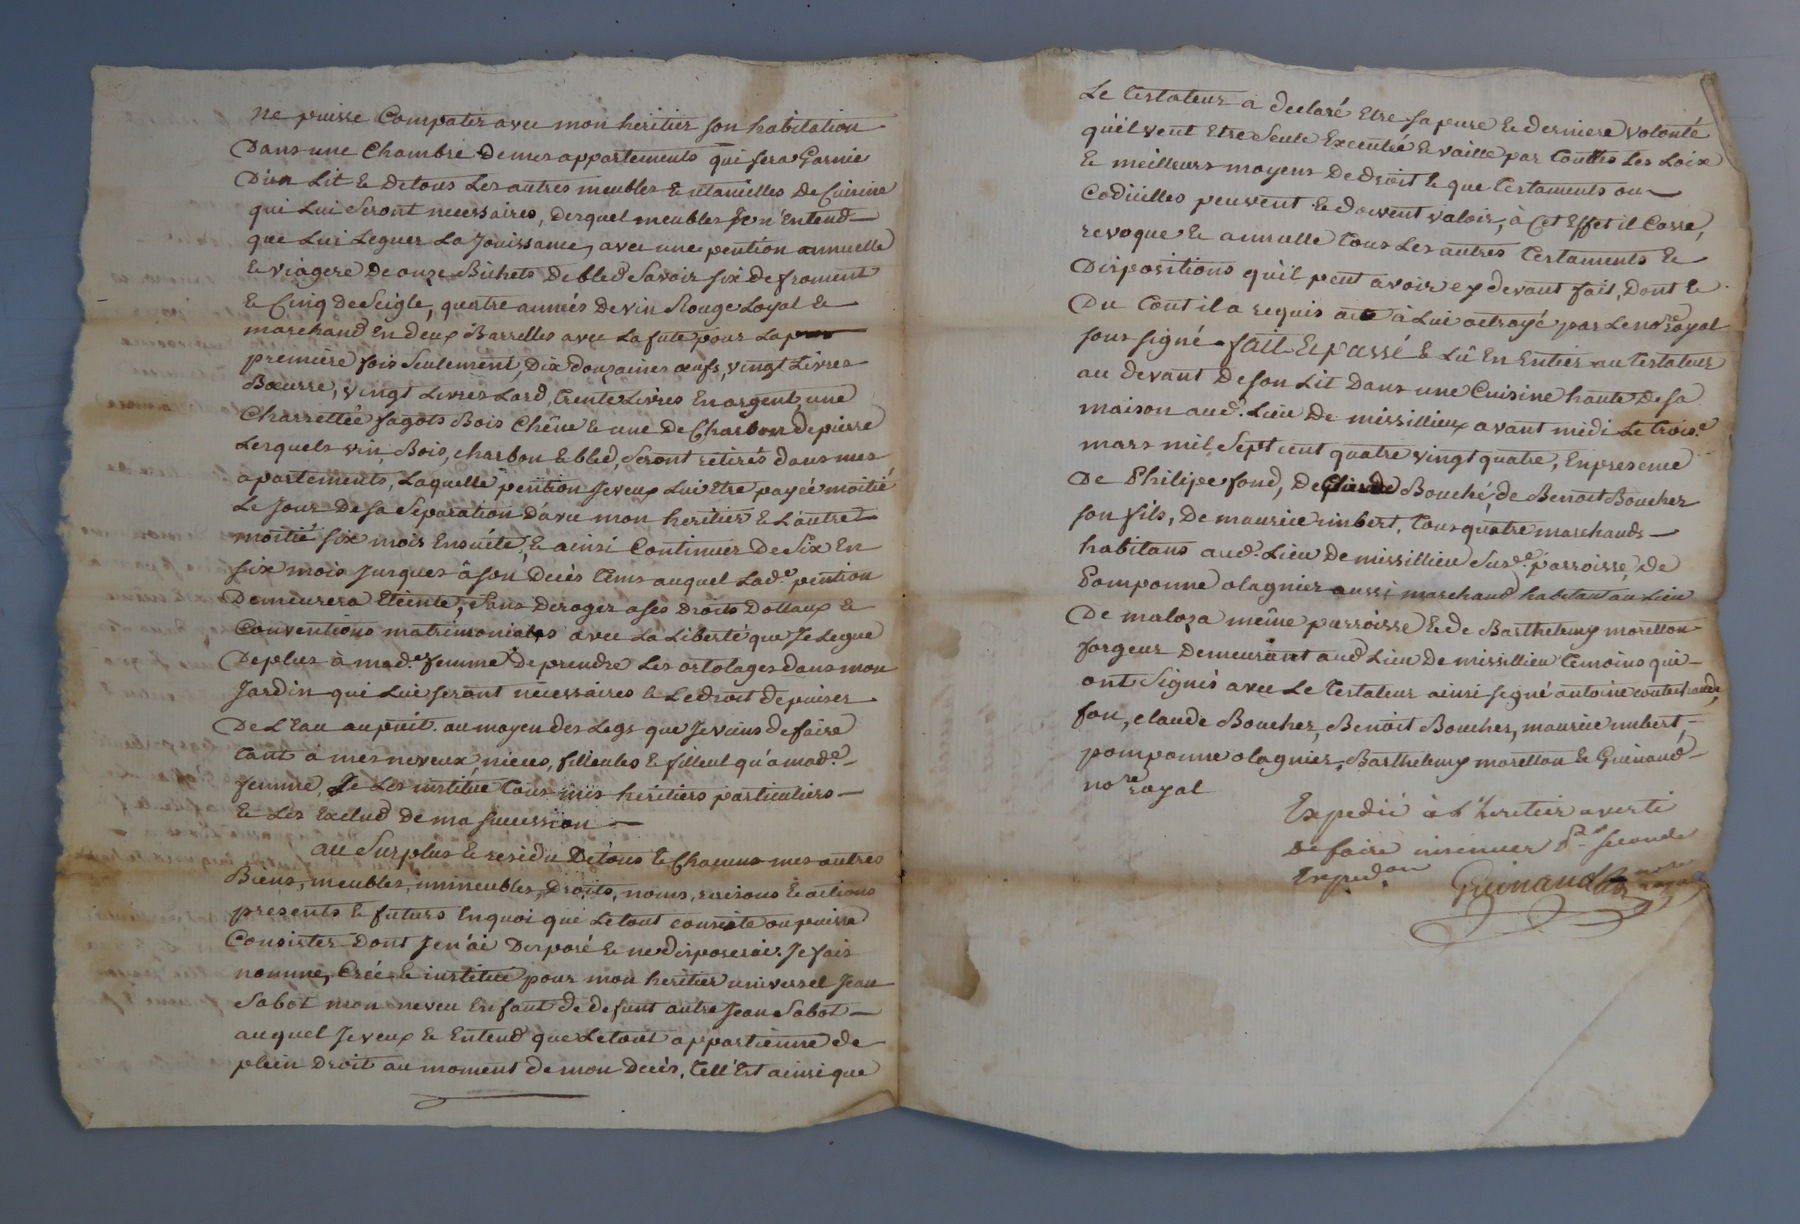 ne puisse Compatir avec mon heritier son habitation
Dans une Chambre de mes appartements qui sera Garnie
D'un Lit & De tous Les autres meubles & utancilles De Cuisine
qui Lui Seront necessaires, desquel meubles Je n'Entend
que Lui Leguer La Jouissance, avec une pention annuelle
& viagere De onze Bichets De bled Savoir six de froment
& Cinq de Seigle, quatre annés De vin Rouge Loyal &
marchand En deux Barrelles avec La fute pour La
premiere fois Seulement, Dix douzaines œufs, vingt Livres
Bœurre, vingt Livres Lard, trente Livres En argent, une
Charrettée fagots Bois Chêne & une de Charbon de pierre
Lesquels vin, Bois, charbon & bled, Seront retirés dans mes
apartements, Laquelle pention Je veux Lui Etre payée moitié
Le Jour De sa Separation d'avec mon heritier & L'autre
moitié six mois Ensuite, & ainsi Continuer De Six En
six mois Jusques à son Decès tems auquel Lad.e pention
Demeurera Eteinte, Sans Deroger a ses Droits Dottaux &
Conventions matrimoniales avec La Liberté que Je Legue
De plus à mad.e femme de prendre Les ortolages dans mon
Jardin qui Lui seront necessaires & Le droit de puiser
De L'Eau au puit. au moyen des Legs que Je viens de faire
tant à mes neveux, nieces, filleules & filleul qu'à mad.e
femme, Je Les institue tous mes heritiers particuliers
& Les Exclud de ma succession
au Surplus & residu De tous & Chacuns mes autres
Biens, meubles, immeubles, Droits, noms, raisons & actions
presents & futurs En quoi que Le tout consiste ou puisse
Consister Dont Je n'ai Disposé & ne disposerai. Je fais
nomme, Crée & institue pour mon heritier universel Jean
Sabot mon neveu Enfant de defunt autre Jean Sabot
auquel Je veux & Entend que Le tout appartienne de
plein Droit au moment de mon Decès, tell'Est ainsi que
Le testateur a declaré Etre sa pure & derniere volonté
qu'il veut Etre Seule Executée & vaille par touttes Les Loix
& meilleurs moyens De droit & que testaments ou
Codicilles peuvent & doivent valoir, à Cet Effet il Casse,
revoque & annulle tous Les autres testaments &
Dispositions qu'il peut avoir cy devant fait, Dont &
Du tout il a requis acte à Lui octroyé par Le no.re royal
sous signé fait & passé & Lû En Entier au testateur
au devant De son Lit Dans une Cuisine haute De sa
maison aud. Lieu De missillieux avant midi Le trois.e
mars mil Sept cent quatre vingt quatre, En presence
De Philipe fond, De Claude Bouché, de Benoit Boucher
son fils, De maurice imbert, tous quatre marchands
habitans aud. Lieu De missillieu Sus.e parroisse, de
Pomponne olagnier aussi marchand habitant au Lieu
De maloza même parroisse & de Barthelemy moretton
forgeur Demeurant aud Lieu De missillieu temoins qui
ont Signés avec Le testateur ainsi signé antoine
fon, claude Boucher, Benoit Boucher, maurice imbert,
pomponne olagnier, Barthelemy moretton & Guinaud
no.re royal
Expedié à l'heritier averti
de faire insinuer seconde
Expedon
Guinaud